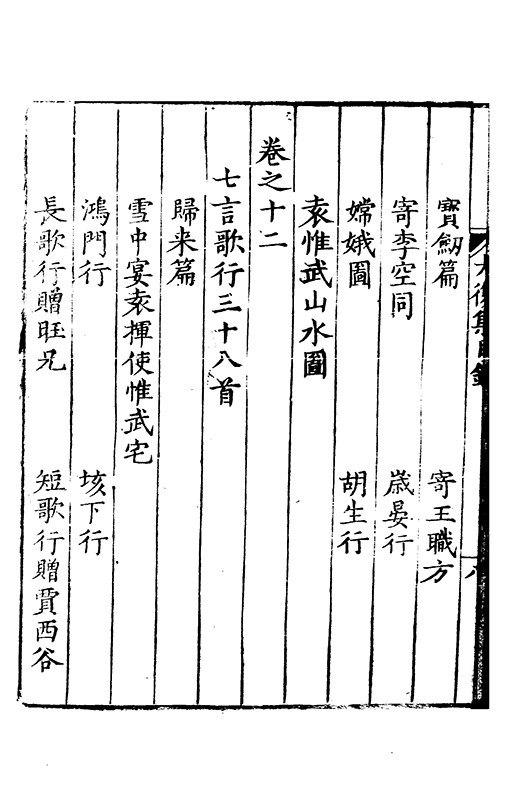 寶劒篇　寄王職方
寄李空同　歲晏行
嫦娥圖　胡生行
袁惟武山水圖
卷之十二
七言歌行三十八首
歸来篇
雪中宴袁揮使惟武宅
鴻門行　垓下行
長歌行贈旺兄　短歌行贈賈西谷